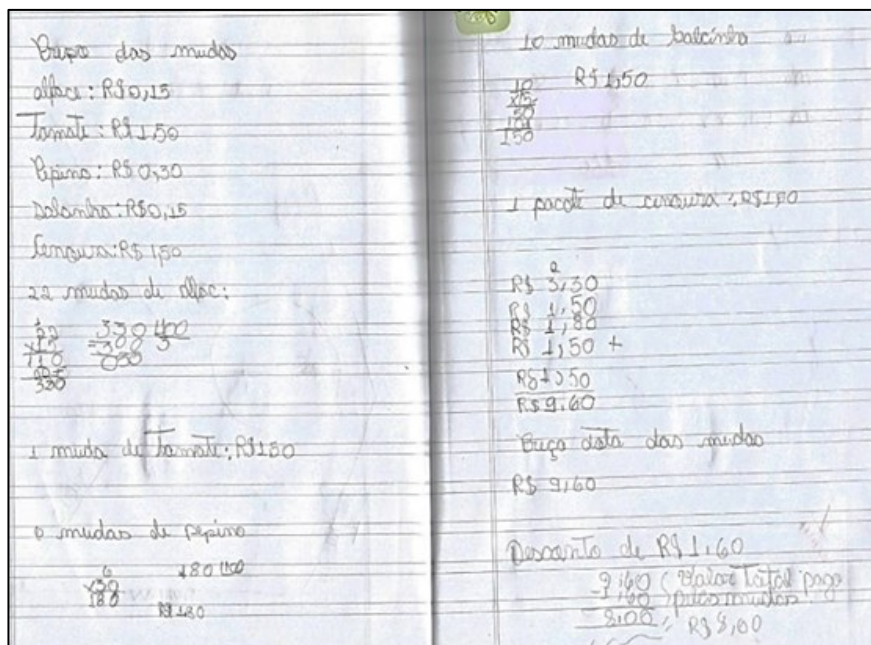 Preço das mudas
alface: R$0,15
Tomate: R$ 1,50
Pepino: R$ 0,30
Salsinha: R$0,15
Cenoura: R$ 1,50
22 mudas de alfac:
22 330 100
x15 -300 3
110 030
330
1 muda de Tomate: R$1,50
6 mudas de pepino
6 180 100
x30
180
R$ 1,80
10 mudas de salcinha
10 R$ 1,50
x15
50
10
150
1 pacote de cenoura: R$1,50
2
R$ 3,30
R$ 1,50
R$ 1,80
R$ 1,50 +
R$ 1,50
R$ 9,60
Preço das mudas
R$ 9,60
Desconto de R$ 1,60
9,60 Valor Total pago
-1,60 pelas mudas:
8,00 R$ 8,00